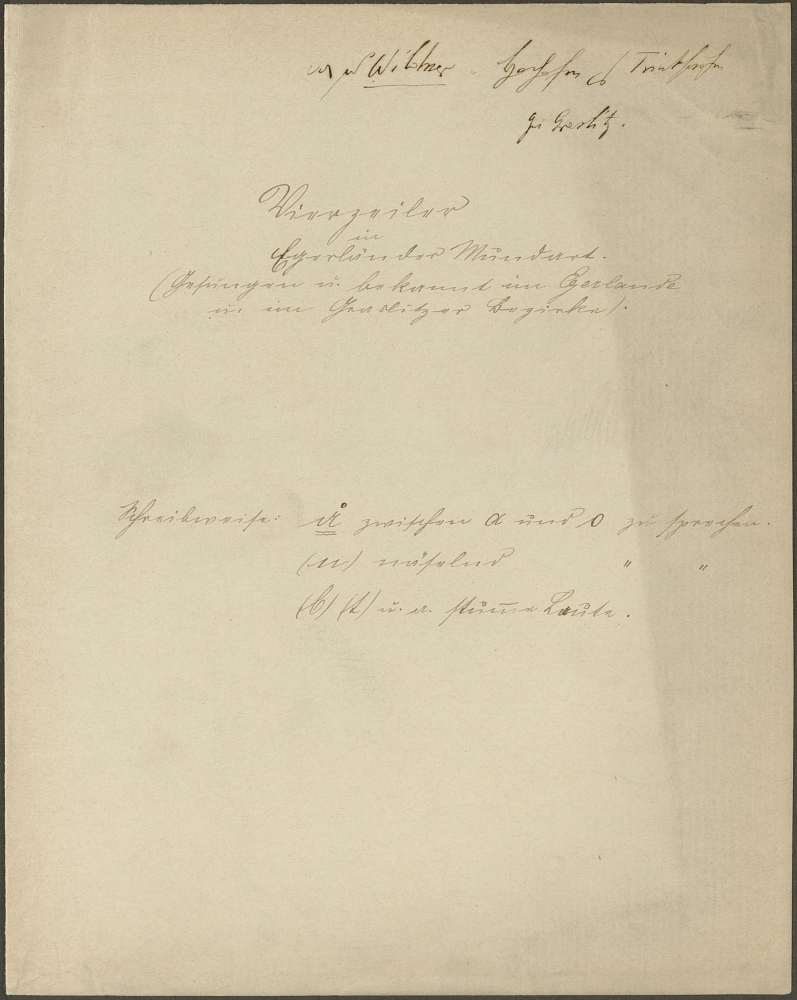 Wiltner
zu Graslitz.
Vierzeiler
in
Egerländer Mundart.
(Gesungen u. bekannt im Egerlande
u. im Graslitzer Bezirke).
Schreibweise: å zwischen a und o zu sprechen.
(n) näselnd " "
(b) (t) u. a. stum̅e Laute.